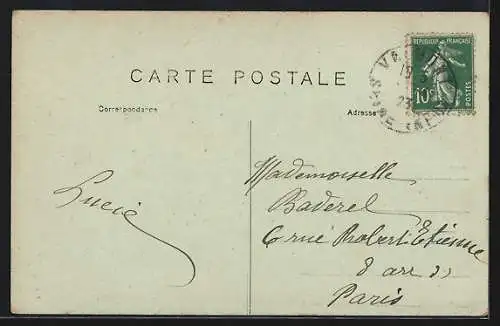 CARTE POSTALE
Correspondance
Adresse
REPUBLIQUE FRANÇAISE
10c
POSTES
Lucie
Mademoiselle
Baderel
6 rue Robert Etienne
8 arr
Paris